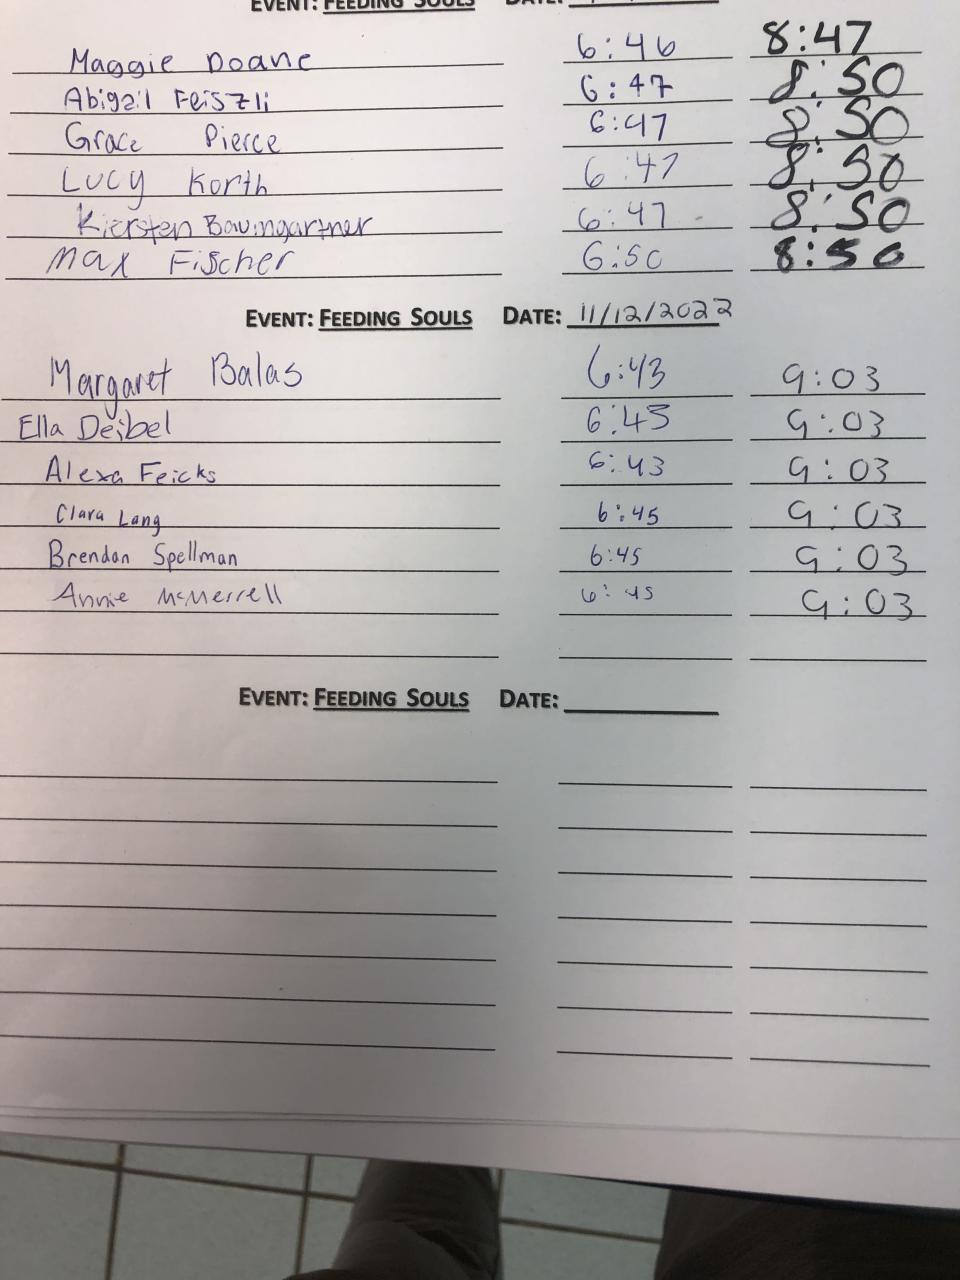 EVENT: FEEDING SOULS DATE:
Maggie Doane 6:46 8:47
Abigail Feiszli 6:47 8:50
Grace Pierce 6:47 8:50
Lucy Korth 6:47 8:50
Kiersten Baumgartner 6:47 8:50
Max Fischer 6:50 8:50
EVENT: FEEDING SOULS DATE: 11/12/2022
Margaret Balas 6:43 9:03
Ella Deibel 6:45 9:03
Alexa Feicks 6:43 9:03
Clara Lang 6:45 9:03
Brendan Spellman 6:45 9:03
Annie McMerrell 6:45 9:03
EVENT: FEEDING SOULS DATE: